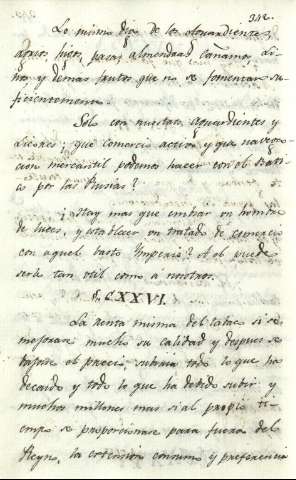 342.
Lo mismo digo de los aguardientes,
arroz, higos, pasas, almendras, cañamo, Li-
no, y demas frutos que no se fomentan su-
ficientemente.
Solo con nuestros aguardientes y
Licores, ¿que comercio activo, y que navega-
cion mercantil podemos hacer con el Balti-
co por las Rusias?
¿Hay mas que embiar un hombre
de luces, y establecer un tratado de comercio
con aquel basto Imperio? A el puede
serle tan util como a nosotros.
§. CXXVI.
La renta misma del tabaco si se
mejorase mucho su calidad y despues se
bajase el precio, subiria todo lo que ha
decaido y todo lo que ha debido subir y
muchos millones mas si al propio ti-
empo se proporcionase para fuera del
Reyno, la extension consumo y preferencia